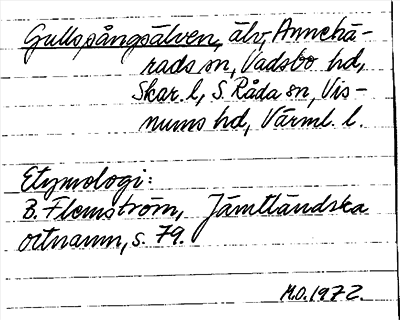 Gullspångsälven, älv, Annehä-
rads sn, Vadsbo hd,
Skar. l, S. Råda sn, Vis-
nums hd, Värml. l.
Etymologi:
B. Flemström, Jämtländska
ortnamn, s. 79.
M.O. 1972.